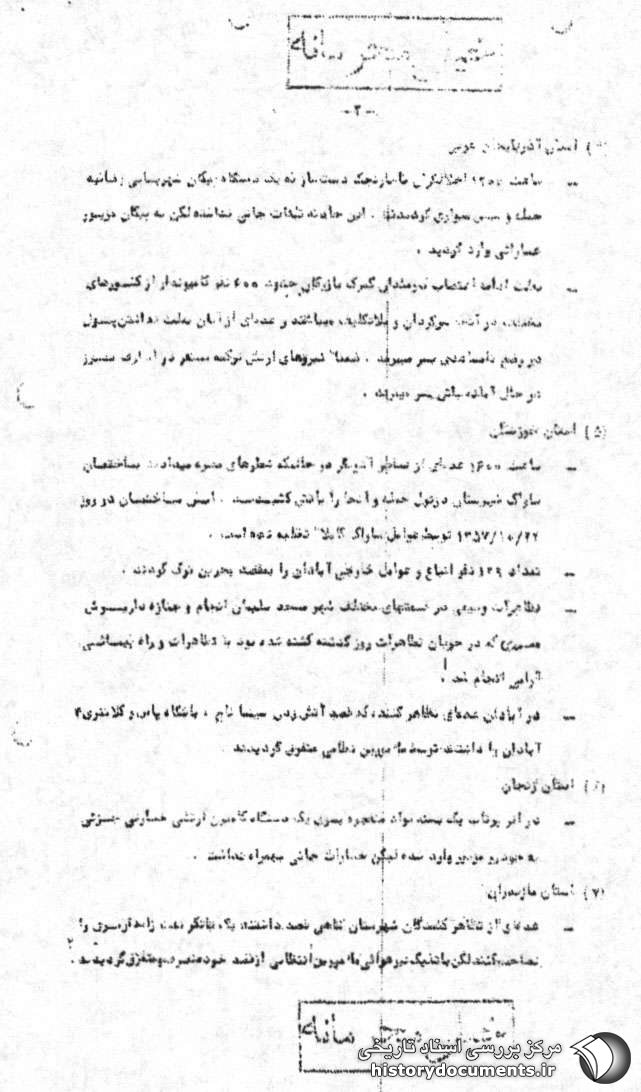 خیلی محرمانه
-۳-
۴) استان آذربایجان غربی
- ساعت ۱۲۰۰ اخلالگران با نارنجک دست‌ساز به یک دستگاه پیکان شهربانی رضائیه
حمله و سپس متواری گردیدند . این حادثه تلفات جانی نداشته لکن به پیکان مزبور
خساراتی وارد گردید .
- بعلت ادامه اعتصاب گمرک بازرگان حدود ۶۰۰ نفر کامیوندار از کشورهای
مختلف در آنجا سرگردان و بلاتکلیف میباشند و عده‌ای از آنان بعلت نداشتن پول
در وضع نامساعدی بسر میبرند . ضمنا" نیروهای ارتش ترکیه مستقر در مرز
در حال آماده باش بسر میبرند .
۵) استان خوزستان
- ساعت ۱۶۰۰ عده‌ای از در حالیکه شعارهای مضره میدادند بساختمان
ساواک شهرستان دزفول حمله و آنجا را بآتش کشیدند . این ساختمان در روز
۱۳۵۷/۱۰/۲۲ توسط عوامل ساواک کاملا" تخلیه شده است .
- تعداد ۱۲۹ نفر اتباع و عوامل خارجی آبادان را بمقصد بحرین ترک کردند .
- تظاهرات وسیعی در قسمتهای مختلف شهر مسجد سلیمان انجام و جنازه داریوش
که در جریان تظاهرات روز گذشته کشته شده بود با تظاهرات و راه پیمائی
آرامی انجام شد .
- در آبادان عده‌ای تظاهر کننده که قصد آتش زدن سینما تاج ، باشگاه پاس و کلانتری ۴
آبادان را داشتند توسط مامورین نظامی متفرق گردیدند .
۶) استان زنجان
- در اثر پرتاب یک بسته مواد منفجره بسوی یک دستگاه کامیون ارتشی خسارتی جزئی
به خودرو مزبور وارد شده لیکن خسارات جانی بهمراه نداشت .
۷) استان مازندران
- عده‌ای از تظاهر کنندگان شهرستان قصد داشتند یک تانکر نفت ژاندارمری را
تصاحب کنند لکن با شلیک تیر هوائی مامورین انتظامی از قصد خود منصرف و متفرق گردیدند .
خیلی محرمانه
مرکز بررسی اسناد تاریخی
historydocuments.ir